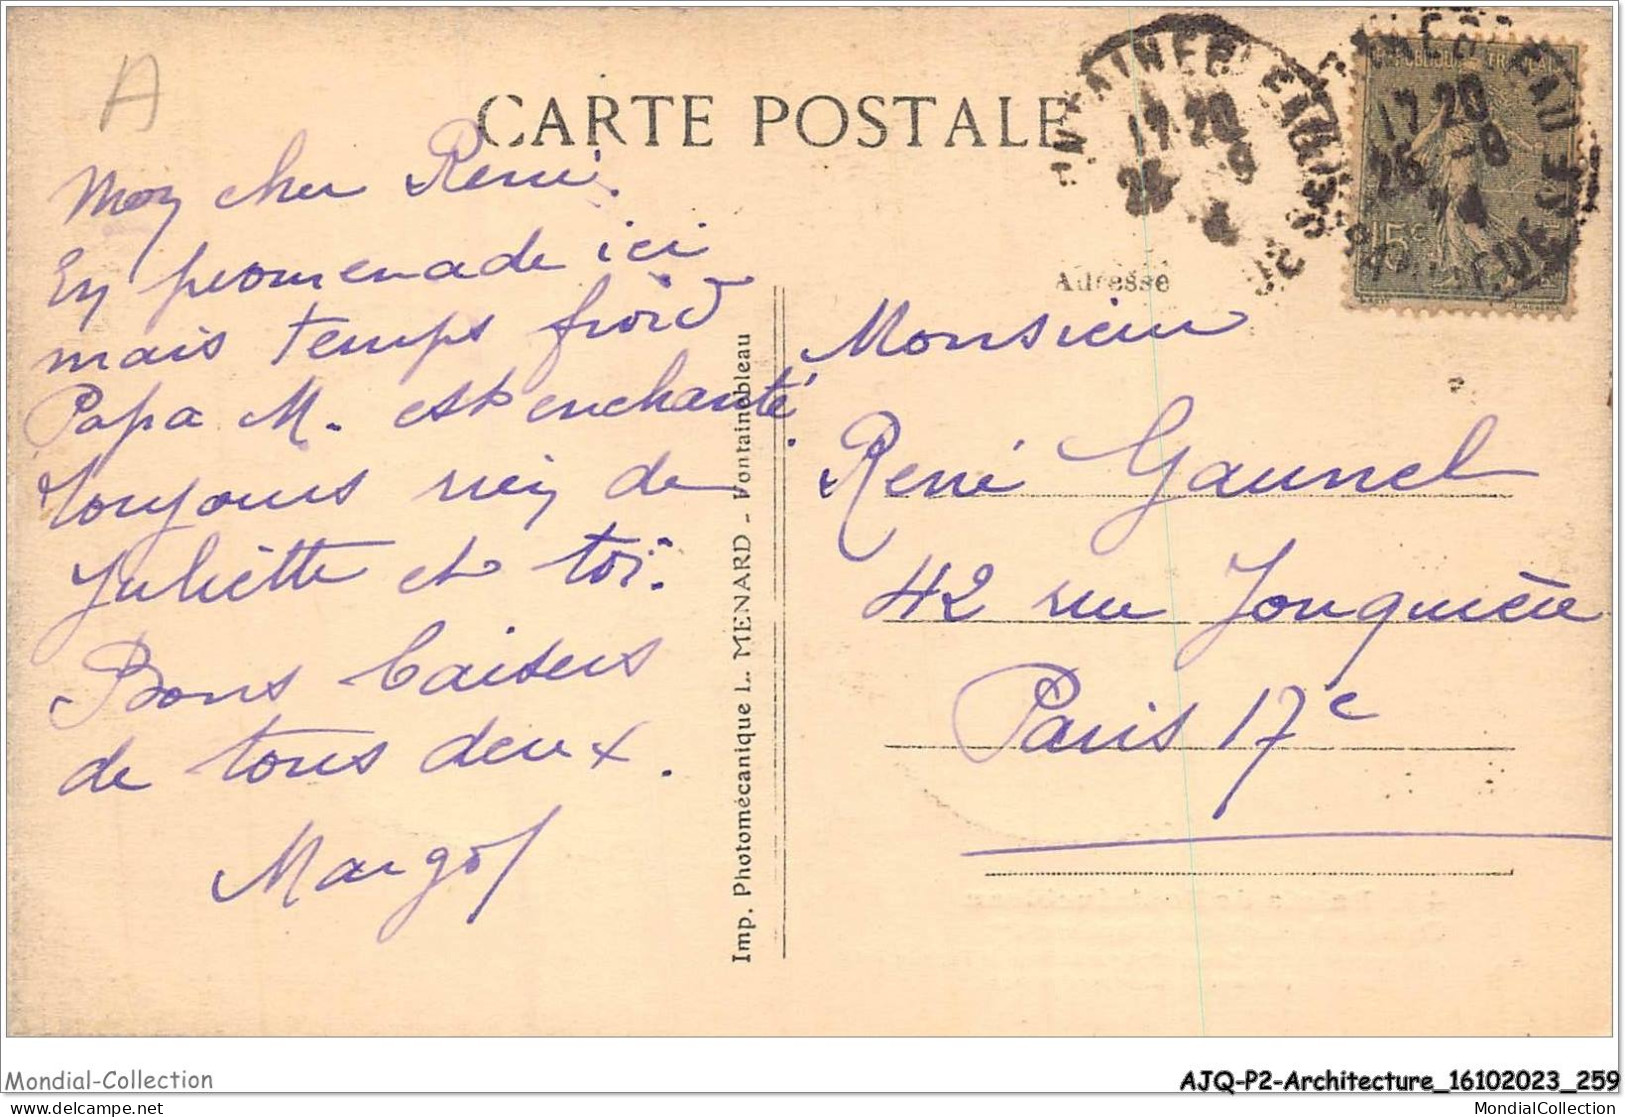 A
CARTE POSTALE
Mon cher René.
En promenade ici
mais temps froid
Papa M. est enchanté.
Toujours rien de
Juliette et toi.
Bons baisers
de tous deux.
Margot
Imp. Photomécanique L. MENARD - Fontainebleau
17 20
26 -9
17 20
26 -9
15c
Adresse
Monsieur
René Gaunel
42 rue Jonquière
Paris 17e
Mondial-Collection
AJQ-P2-Architecture_16102023_259
https://www.delcampe.net
MondialCollection